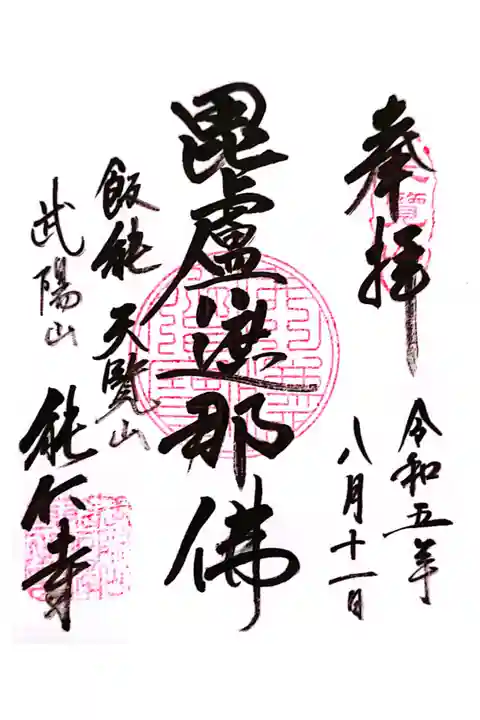 奉拝
令和五年
八月十一日
毘盧遮那佛
飯能 天覧山
武陽山
能仁寺